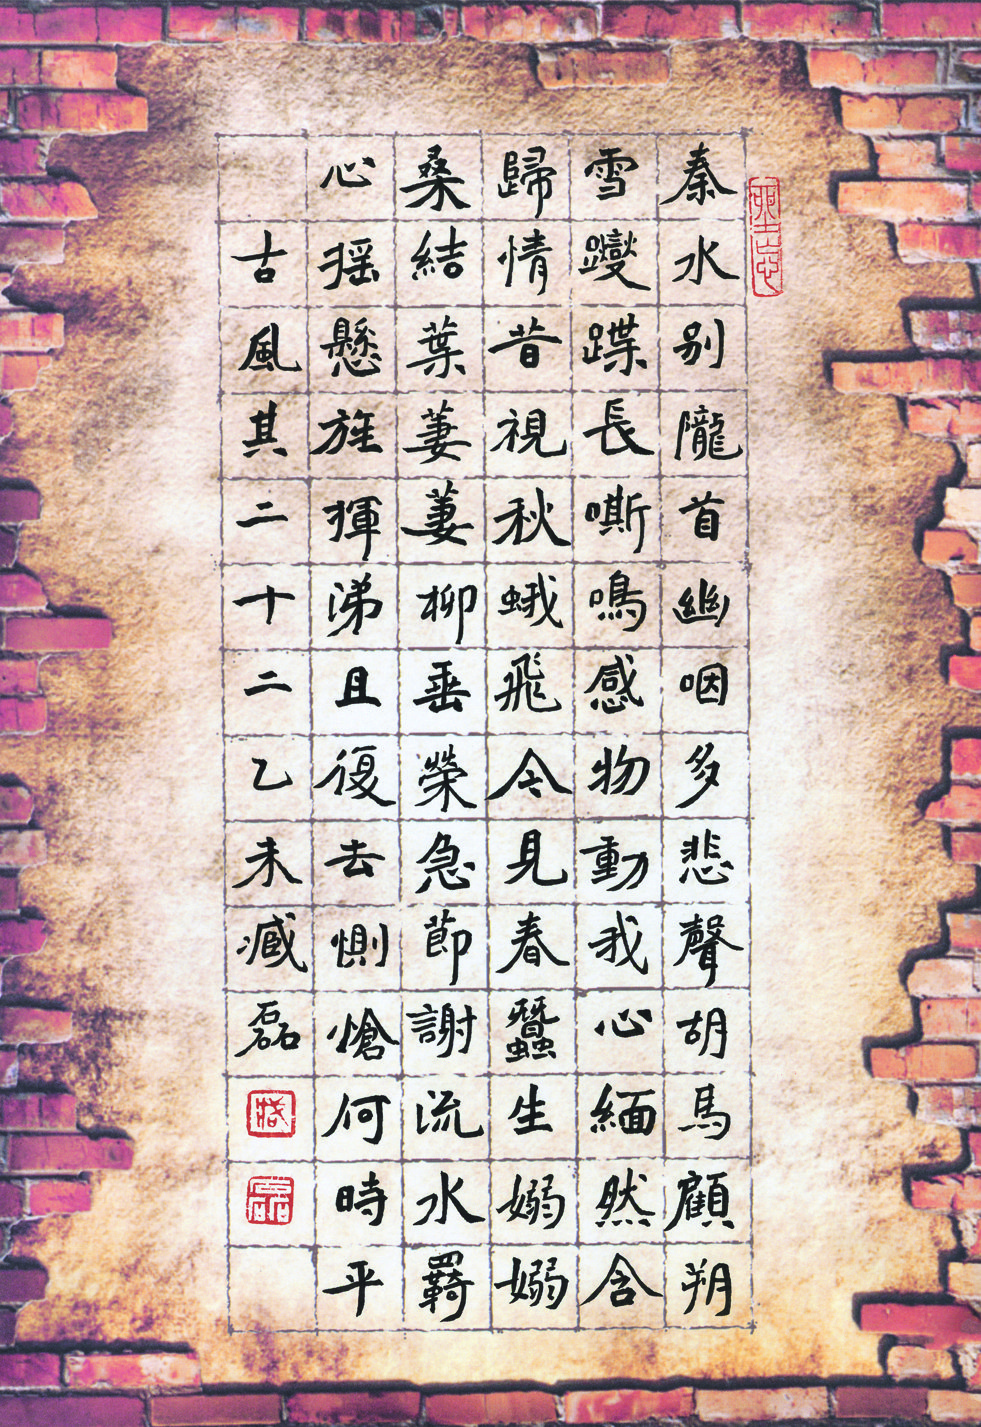 秦水别隴首幽咽多悲聲胡馬顧朔
雪躞蹀長嘶鳴感物動我心緬然含
歸情昔視秋蛾飛今見春蠶生嫋嫋
桑結葉萋萋柳垂榮急節謝流水羈
心摇懸旌揮涕且復去惻愴何時平
古風其二十二乙未臧磊